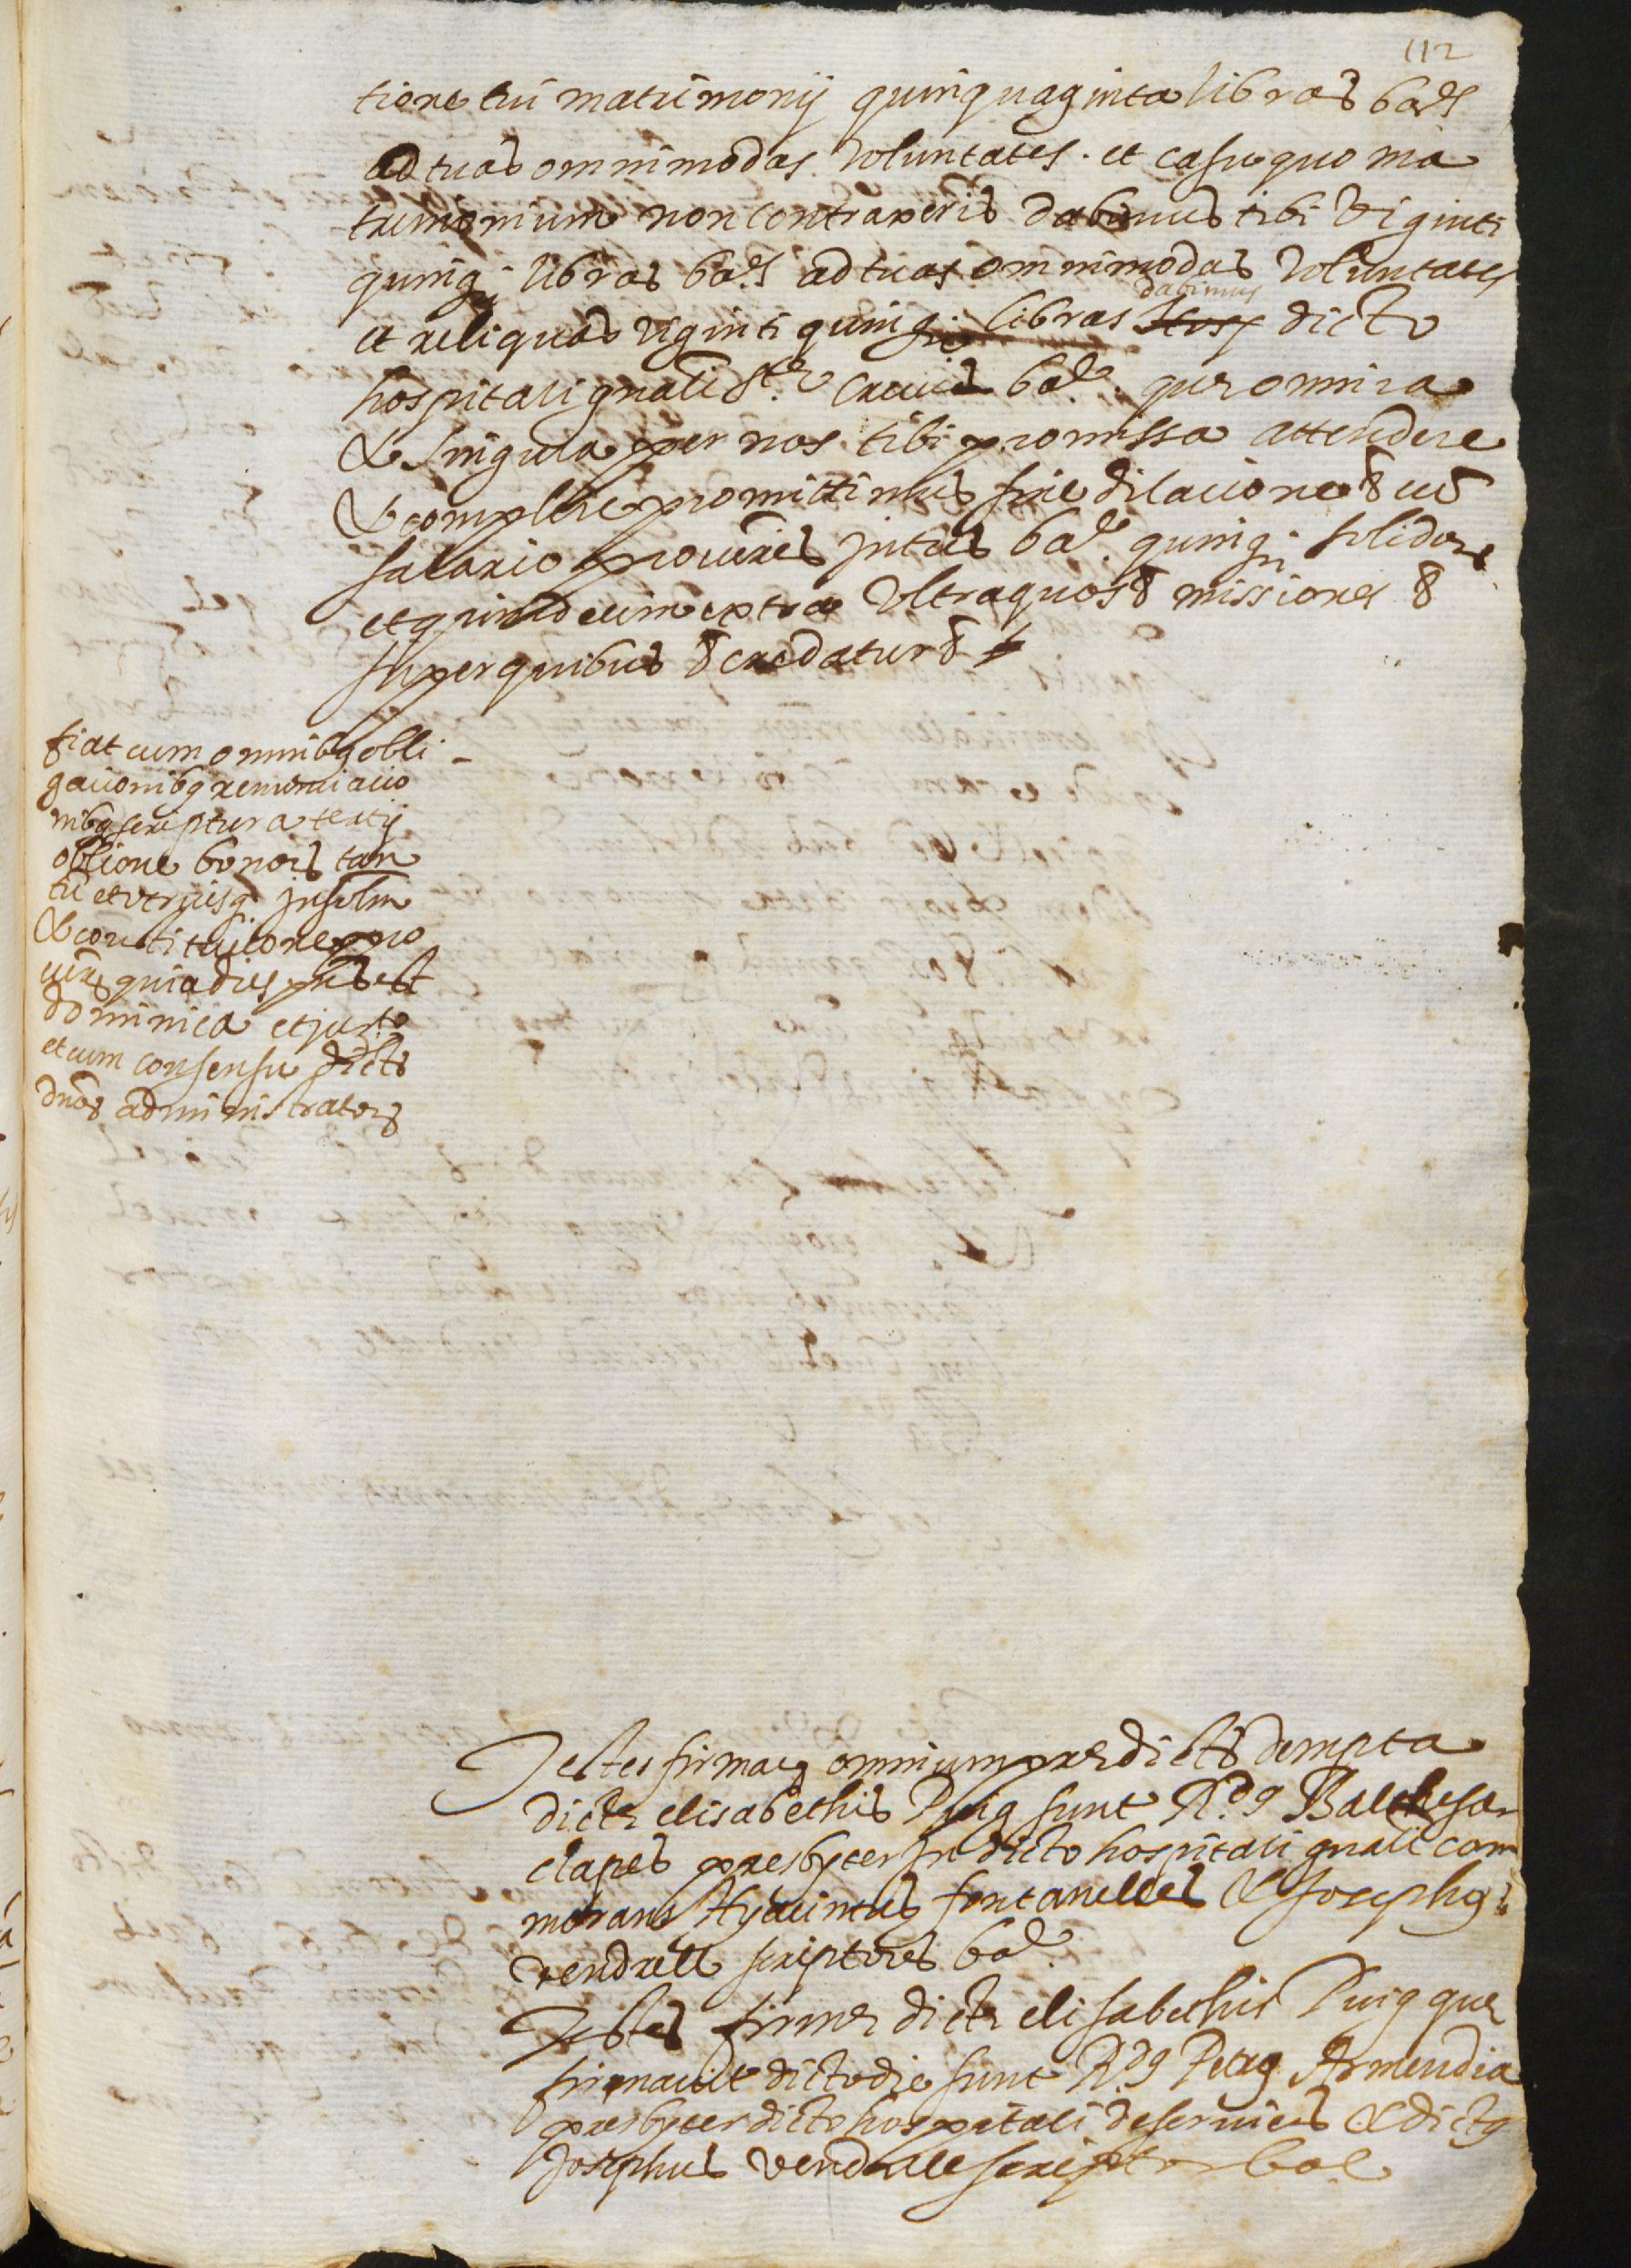 112
tione tui matrimonij quinquaginta libras bar.s
ad tuas omnimodas voluntates. et casu quo ma
trimonium non contraxeris dabimus tibi viginti
quinq; libras bar.s ad tuas omnimodas voluntates
dabimus
et reliquas viginti quinq; libras dicto
hospitali gnali S.te Crucis bar.e que omnia
& singula per nos tibi promissa attendere
& complere promittimus sine dilatione & cũ
salario procũris intus bar.e quinq; solidorũ
et quindecim extra ultra quos & missiones &
super quibus & credatur &
fiat cum omnibq obli-
gationibq renuntiatio
nibq scriptura tertij
oblione bonorũ tan
tũ et utriusq. insolm
& constitutione pro
cũris quia dies pñs est
dominica et jurto
et cum consensu dictorũ
dnõrũ administratorũ
Testes firmarũ omnium predictorũ dempta
dicte elisabethis Puig sunt R.dq Balthesar
clapes presbyter in dicto hospitali gnali com
morans Hyacintus fontanelles & Josephq
vendrell scriptores bar.e
Testes firme dicte elisabethis Puig que
firmavit dicto die sunt R.dq Petrq Armendia
presbyter dicto hospitali deserviens & dictq
Josephus vendrell scriptor bar.e